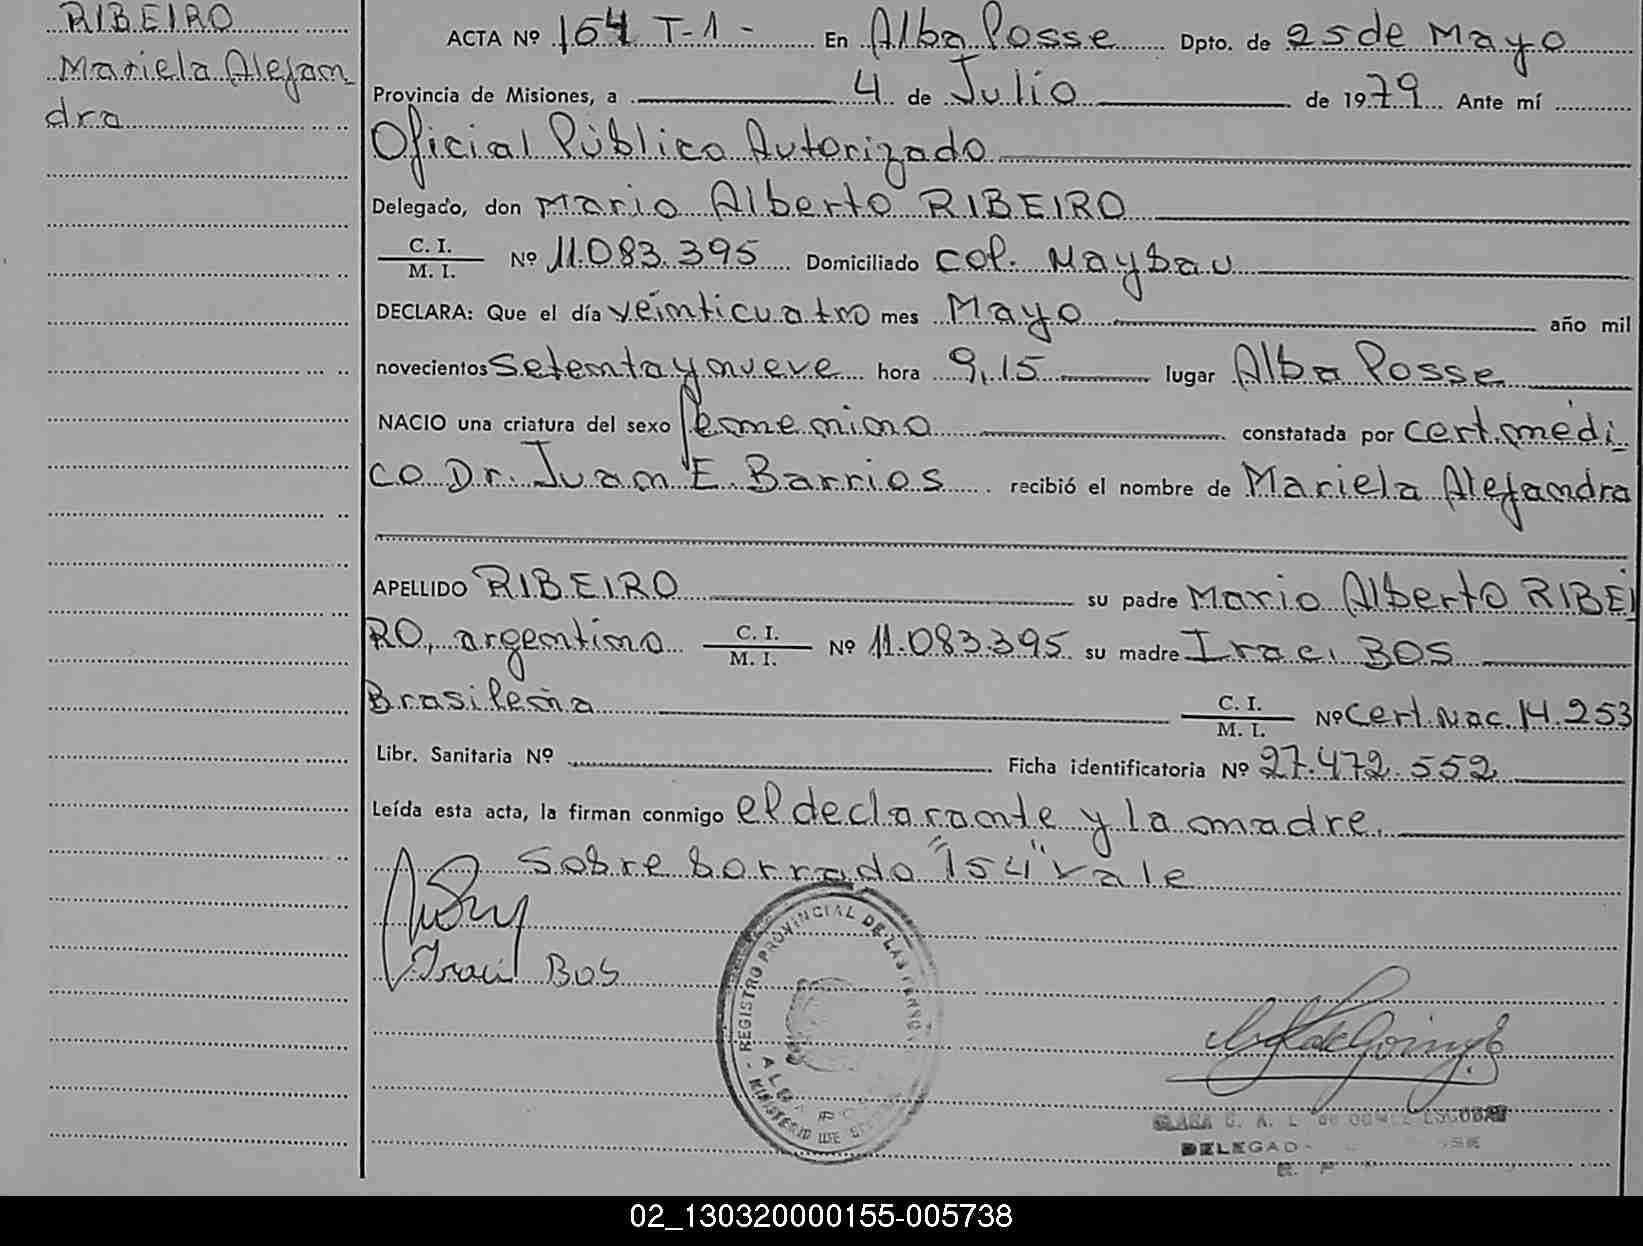 RIBEIRO
Mariela Alejan
dra
ACTA Nº 154 T-1 - En Alba Posse Dpto. de 25 de Mayo
Provincia de Misiones, a 4 de Julio de 1979 Ante mí
Oficial Público Autorizado
Delegado, don Mario Alberto RIBEIRO
C. I.
M. I.
Nº 11.083.395 Domiciliado Col. Maybau
DECLARA: Que el día veinticuatro mes Mayo año mil
novecientos setenta y nueve hora 9,15 lugar Alba Posse
NACIO una criatura del sexo femenino constatada por cert. médi
co Dr. Juan E. Barrios recibió el nombre de Mariela Alejandra
APELLIDO RIBEIRO su padre Mario Alberto RIBEI
RO, argentino C. I.
M. I.
Nº 11.083.395 su madre Iraci BOS
Brasileña C. I.
M. I.
Nº Cert. Nac. 14.253
Libr. Sanitaria Nº Ficha identificatoria Nº 27.472.552
Leída esta acta, la firman conmigo el declarante y la madre.
Sobre borrado "154" vale
Iraci BOS
REGISTRO PROVINCIAL DE LAS PERSONAS
MINISTERIO DE
DELEGAD
02_130320000155-005738